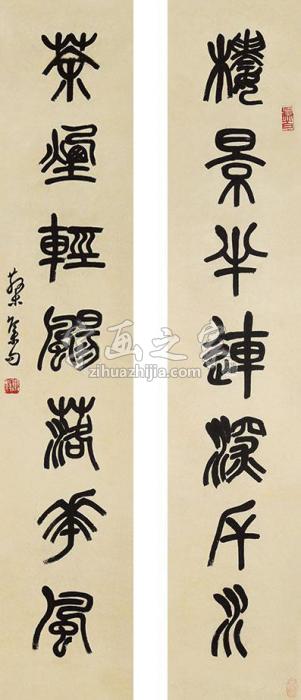 樓景半連深厈水
茶煙輕颺落花風
集句
字画之家
zihuazhijia.com